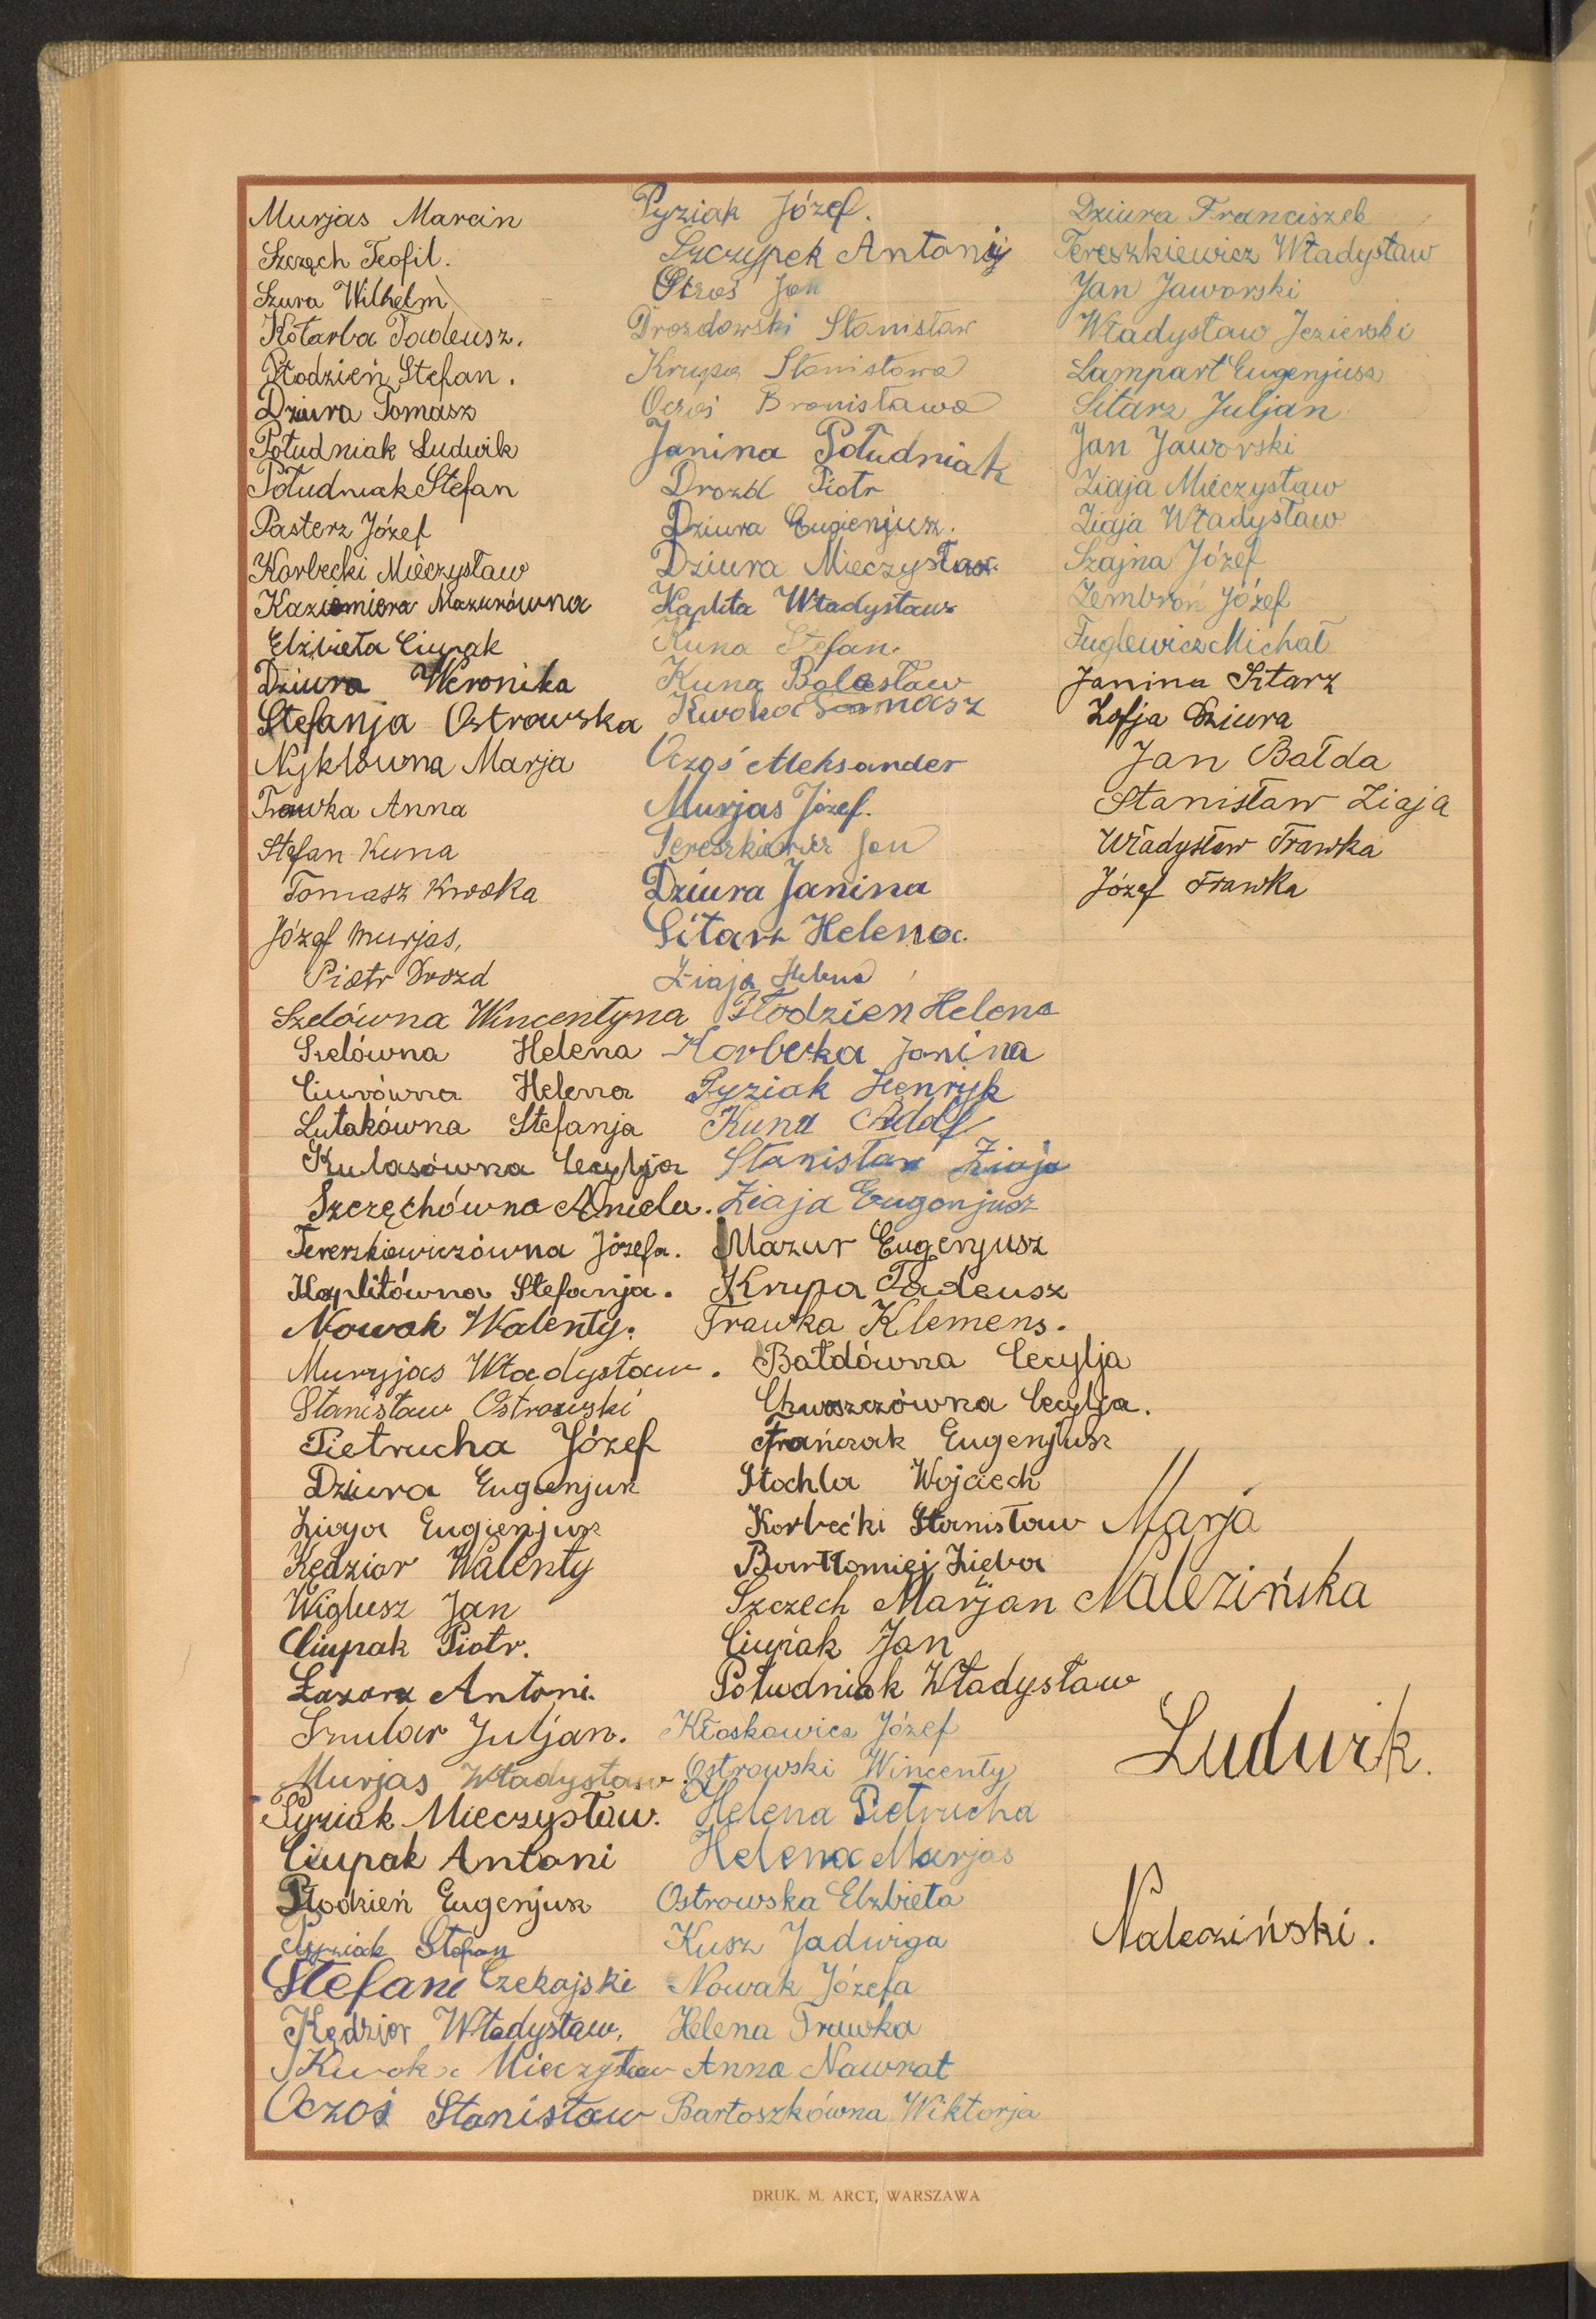 Murjas Marcin
Szczęch Teofil.
Szura Wilhelm
Kotarba Tadeusz.
Płodzień Stefan.
Dziura Tomasz
Południak Ludwik
Południak Stefan
Pasterz Józef
Korbecki Mieczysław
Kazimiera Mazurówna
Elżbieta Ciupak
Dziura Weronika
Stefanja Ostrowska
Nyklówna Marja
Trawka Anna
Stefan Kuna
Tomasz Kwoka
Józef Murjas,
Piotr Drozd
Szelówna Wincentyna
Szelówna Helena
Ciurówna Helena
Lutakówna Stefanja
Kulasówna Cecylja
Szczęchówna Aniela.
Tereszkiewiczówna Józefa.
Kaplitówna Stefanja.
Nowak Walenty.
Muryjas Władysław.
Stanisław Ostrowski
Pietrucha Józef
Dziura Eugienjusz
Ziaja Eugienjusz
Kędzior Walenty
Wiglusz Jan
Ciupak Piotr.
Łazarz Antoni.
Szular Juljan.
Murjas Władysław
Pyziak Mieczysław.
Ciupak Antoni
Płodzień Eugenjusz
Pyziak Stefan
Stefan Czekajski
Kędzior Władysław,
Kwoka Mieczysław
Oczoś Stanisław
Pyziak Józef.
Szczypek Antonij
Oczoś Jan
Drozdowski Stanisław
Krupa Stanisława
Oczoś Bronisława
Janina Południak
Drozd Piotr
Dziura Eugienjusz.
Dziura Mieczysław.
Kaplita Władysław
Kuna Stefan.
Kuna Bolesław
Kwoka Tomasz
Oczoś Aleksander
Murjas Józef.
Tereszkiewicz Jan
Dziura Janina
Sitarz Helena.
Ziaja Helena
Płodzień Helena
Korbecka Janina
Pyziak Henryk
Kuna Adolf
Stanisław Ziaja
Ziaja Eugenjusz
Mazur Eugenjusz
Krupa Tadeusz
Trawka Klemens.
Bałdówna Cecylja
Chwoszczówna Cecylja.
Frańczak Eugenjusz
Stochla Wojciech
Korbecki Stanisław
Bartłomiej Zięba
Szczech Marjan
Ciupak Jan
Południak Władysław
Kłoskowicz Józef
Ostrowski Wincenty
Helena Pietrucha
Helena Marjas
Ostrowska Elżbieta
Kusz Jadwiga
Nowak Józefa
Helena Trawka
Anna Nawrat
Bartoszkówna Wiktorja
Dziura Franciszek
Tereszkiewicz Władysław
Jan Jaworski
Władysław Jezierski
Lampart Eugenjusz
Sitarz Juljan
Jan Jaworski
Ziaja Mieczysław
Ziaja Władysław
Szajna Józef
Zembroń Józef
Fuglewicz Michał
Janina Sitarz
Zofja Dziura
Jan Bałda
Stanisław Ziaja
Władysław Trawka
Józef Trawka
Marja
Nalezińska
Ludwik
Naleziński.
DRUK. M. ARCT, WARSZAWA